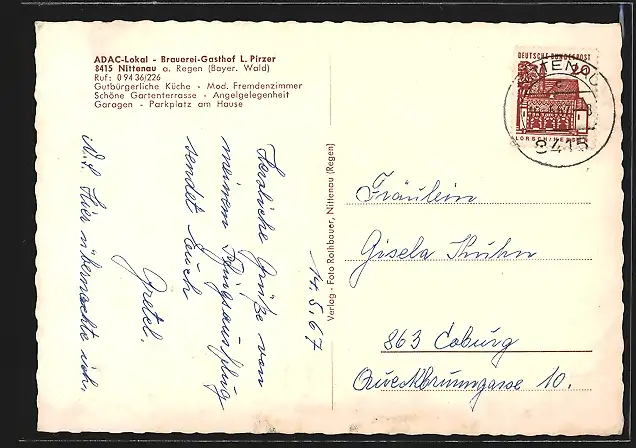 ADAC-Lokal - Brauerei-Gasthof L. Pirzer
8415 Nittenau a. Regen (Bayer. Wald)
Ruf: 0 94 36/226
Gutbürgerliche Küche - Mod. Fremdenzimmer
Schöne Gartenterrasse - Angelgelegenheit
Garagen - Parkplatz am Hause
14.5.67
Herzliche Grüße von
meinem Pfingstausflug
sendet Euch
Gretel.
N.S. Hier übernachte ich
Verlag - Foto Rothbauer, Nittenau (Regen)
DEUTSCHE BUNDESPOST
20
LORSCH/HESSEN
NITTENAU
8415
Fräulein
Gisela Kuhn
863 Coburg
Queckbrunngasse 10.